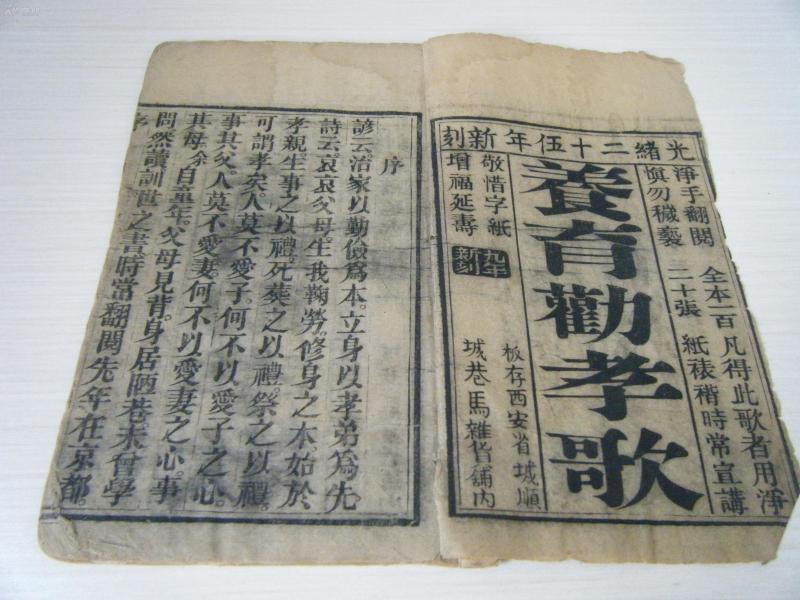 光緒二十伍年新刻
淨手翻閱
慎勿穢褻
凡得此歌者用淨
紙裱褙時常宣講
全本一百
二十張
養育勸孝歌
敬惜字紙
增福延壽
九年
新刻
板存西安省城順
城巷馬雜貨舖內
序
諺云治家以勤儉爲本。立身以孝弟爲先
詩云。哀哀父母。生我鞠勞。修身之本。始於
孝親生事之以禮。死葬之以禮祭之以禮。
可謂孝矣人莫不愛子。何不以愛子之心。
事其父。人莫不愛妻。何不以愛妻之心。事
其母。余自童年。父母見背。身居陋巷未曾學
問然讀訓世之書。時常翻閱先年在京都。
序